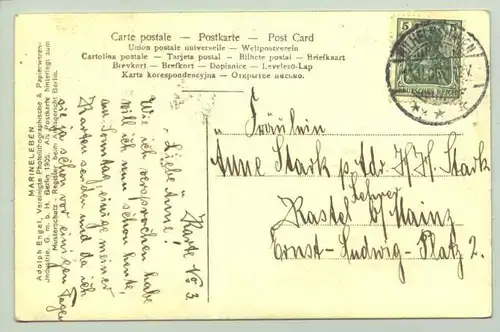 Carte postale – Postkarte – Post Card
Union postale universelle – Weltpostverein
Cartolina postale – Tarjeta postal – Bilhete postal – Briefkaart
Brevkort – Brefkort – Dopisnice – Levelező-Lap
Karta korespondecyjna – Открытое письмо.
5
DEUTSCHES REICH
Fräulein
Anne Stark p. Adr. H. H. Stark
Lehrer
Kastel b/ Mainz
Ernst-Ludwig-Platz 2.
Karte No 3
„Liebe Anne!
Wie ich versprochen habe
will ich nun schon heute,
am Sonntag, einige meiner
Karten senden und da ich
sie ja schon vor einigen Tagen
MARINELEBEN
Adolph Engel, Vereinigte Photolithographische & Papierwaren-
Industrie G. m. b. H. Berlin 1902. Als Postkarte hinterlegt zum
Musterschutz - Register beim Amtsgericht Berlin.